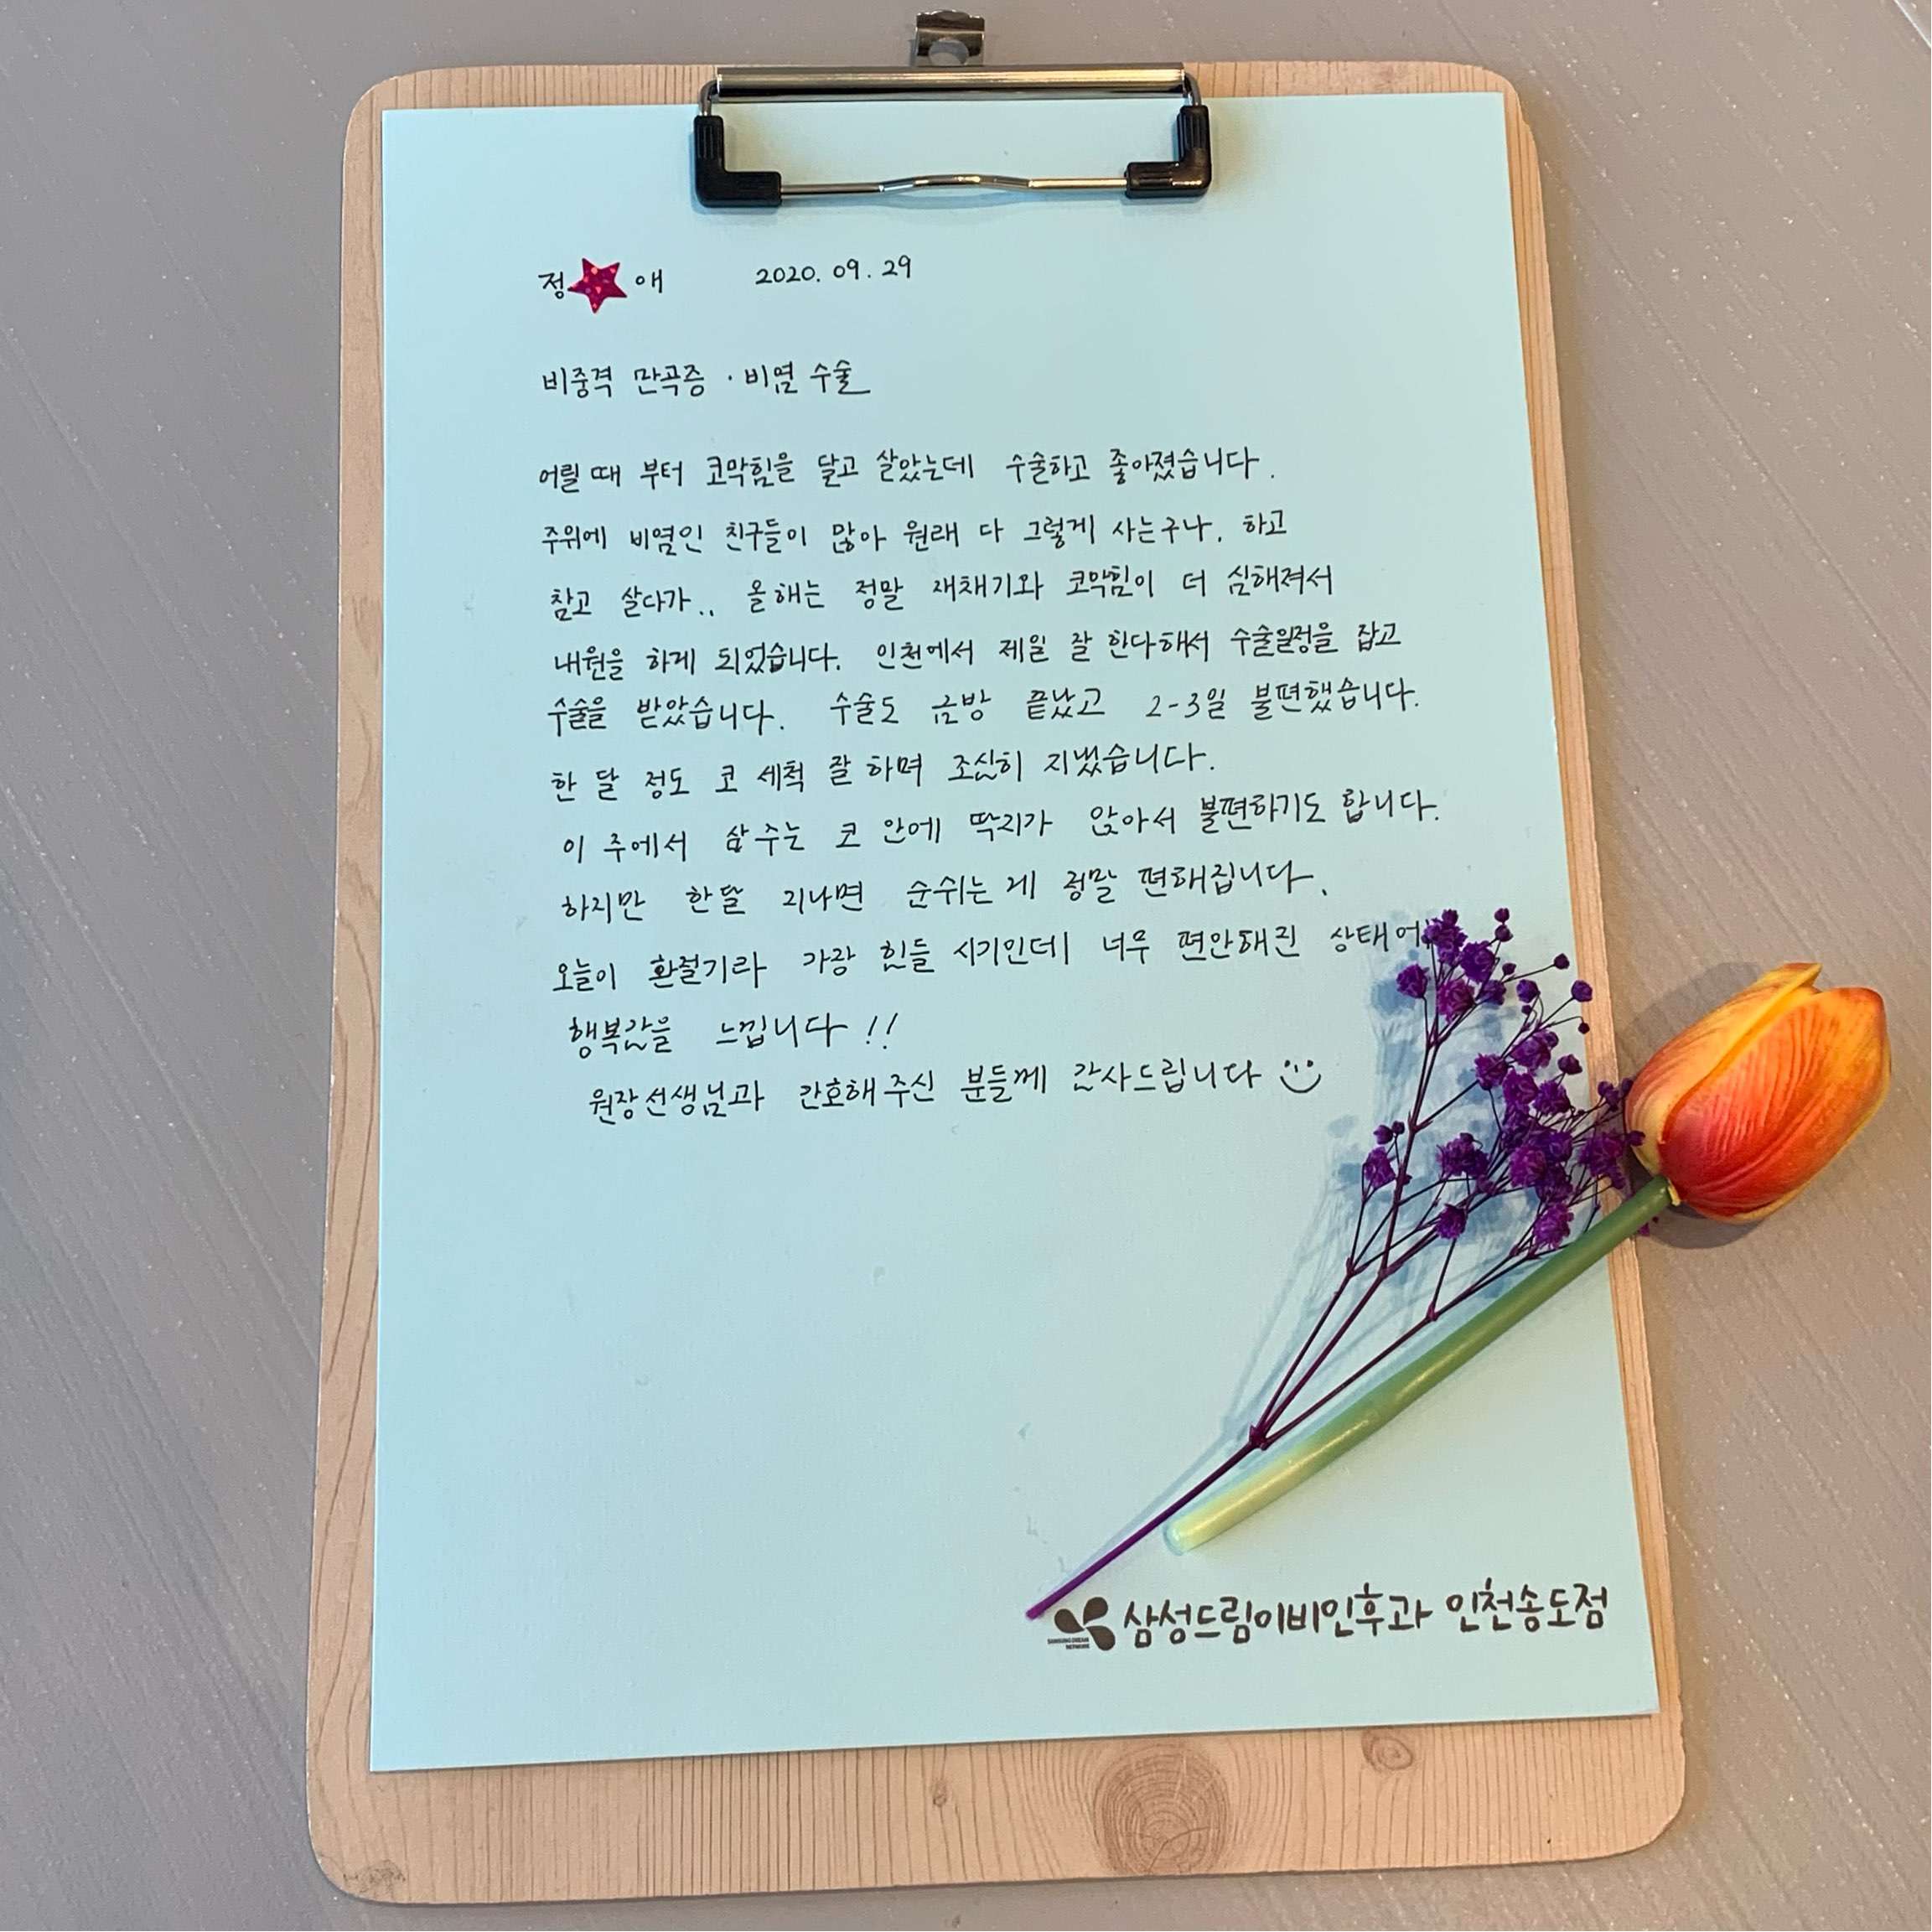 정 애 2020. 09. 29
비중격 만곡증 · 비염 수술
어릴 때 부터 코막힘을 달고 살았는데 수술하고 좋아졌습니다.
주위에 비염인 친구들이 많아 원래 다 그렇게 사는구나, 하고
참고 살다가.. 올해는 정말 재채기와 코막힘이 더 심해져서
내원을 하게 되었습니다. 인천에서 제일 잘 한다해서 수술일정을 잡고
수술을 받았습니다. 수술도 금방 끝났고 2-3일 불편했습니다.
한 달 정도 코 세척 잘 하며 조심히 지냈습니다.
이 주에서 삼 주는 코 안에 딱지가 앉아서 불편하기도 합니다.
하지만 한달 지나면 숨쉬는 게 정말 편해집니다.
오늘이 환절기라 가장 힘들 시기인데 너무 편안해진 상태에
행복감을 느낍니다!!
원장선생님과 간호해주신 분들께 감사드립니다
SAMSUNG DREAM
NETWORK
삼성드림이비인후과 인천송도점